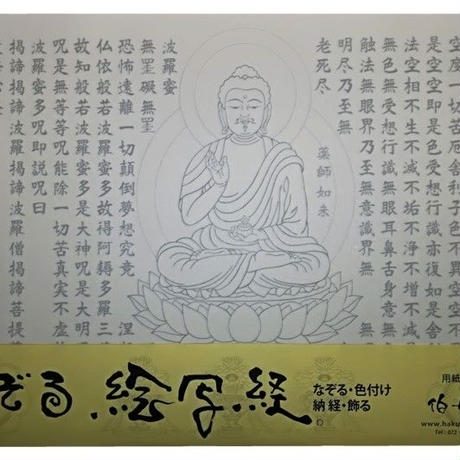 空度一切苦厄舎利子色不異
是空空即是色受想行識亦復如是舎
法空相不生不滅不垢不浄不増不
無色無受想行識無眼耳鼻舌身意無
触法無眼界乃至無意識界無
明尽乃至無
老死尽
薬師如来
波羅蜜
無罣礙無罣
恐怖遠離一切顛倒夢想究竟涅
仏依般若波羅蜜多故得阿耨多羅三
故知般若波羅蜜多是大神呪是大明
呪是無等等呪能除一切苦真実不虚
波羅蜜多呪即説呪曰
揭諦揭諦波羅揭諦波羅僧揭諦菩提
ぞる、絵写経
なぞる・色付け
納経・飾る
用紙
伯
www.haku
Tel:072